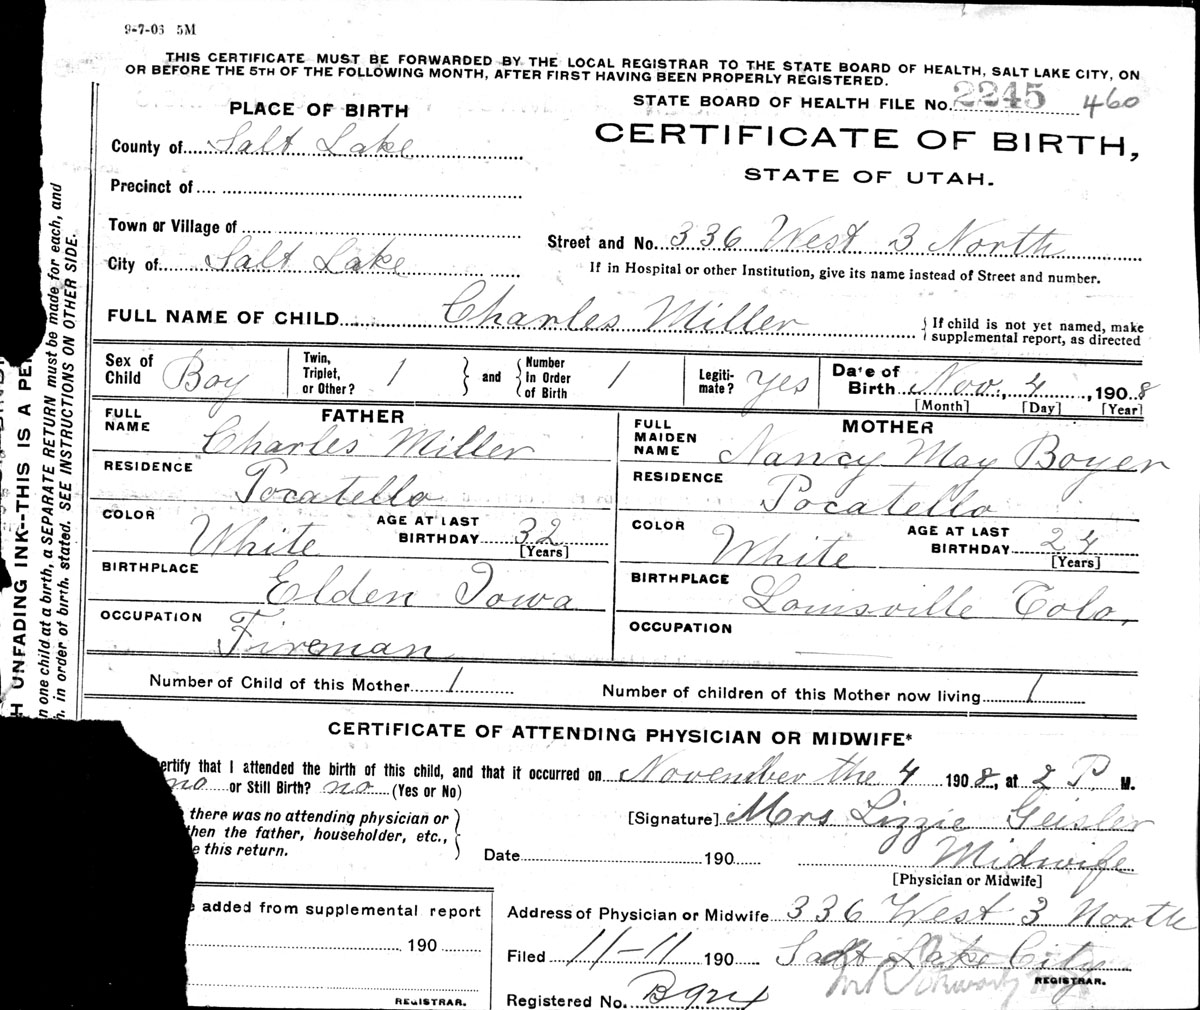 9-7-03 5M
THIS CERTIFICATE MUST BE FORWARDED BY THE LOCAL REGISTRAR TO THE STATE BOARD OF HEALTH, SALT LAKE CITY, ON
OR BEFORE THE 5TH OF THE FOLLOWING MONTH, AFTER FIRST HAVING BEEN PROPERLY REGISTERED.
PLACE OF BIRTH
STATE BOARD OF HEALTH FILE No. 2245 460
CERTIFICATE OF BIRTH,
STATE OF UTAH.
County of Salt Lake
Precinct of
Town or Village of
City of Salt Lake
Street and No. 336 West 3 North
If in Hospital or other Institution, give its name instead of Street and number.
FULL NAME OF CHILD Charles Miller
If child is not yet named, make
supplemental report, as directed
Sex of Child Boy
Twin, Triplet, or Other? 1
and
Number in Order of Birth 1
Legiti- mate? yes
Date of Birth Nov. 4, 1908
[Month] [Day] [Year]
FATHER
FULL NAME Charles Miller
RESIDENCE Pocatello
COLOR White
AGE AT LAST BIRTHDAY 32
[Years]
BIRTHPLACE Elden Iowa
OCCUPATION Fireman
MOTHER
FULL MAIDEN NAME Nancy May Boyer
RESIDENCE Pocatello
COLOR White
AGE AT LAST BIRTHDAY 24
[Years]
BIRTHPLACE Louisville Colo.
OCCUPATION
Number of Child of this Mother 1
Number of children of this Mother now living 1
CERTIFICATE OF ATTENDING PHYSICIAN OR MIDWIFE*
ertify that I attended the birth of this child, and that it occurred on November the 4 1908, at 2 P. M.
no or Still Birth? no (Yes or No)
there was no attending physician or
hen the father, householder, etc.,
e this return.
[Signature] Mrs Lizzie Geisler
Date 190
Midwife
[Physician or Midwife]
added from supplemental report
190
REGISTRAR.
Address of Physician or Midwife 336 West 3 North
Filed 11-11 190 Salt Lake City
REGISTRAR.
Registered No.
H UNFADING INK--THIS IS A PE
n one child at a birth, a SEPARATE RETURN must be made for each, and
h. in order of birth. stated. SEE INSTRUCTIONS ON OTHER SIDE.